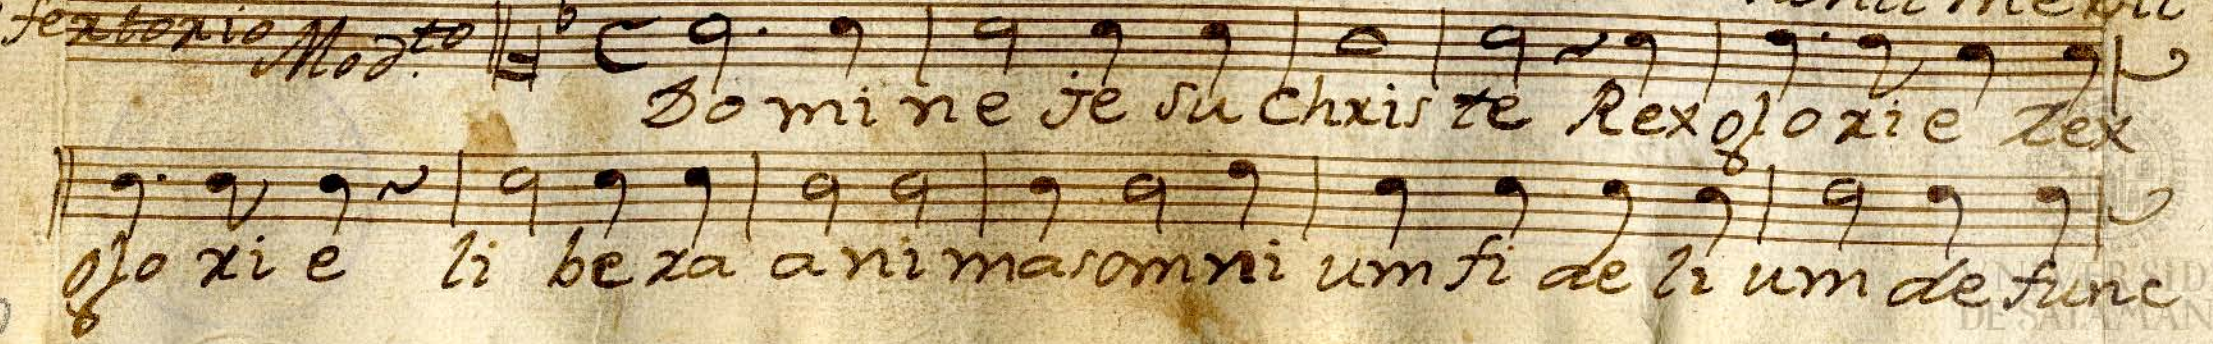 fertorio Mod.to
Domine Jesu Christe Rex glorie Rex
glorie libera animas omnium fidelium defunc
UNIVERSID
DE SALAMAN